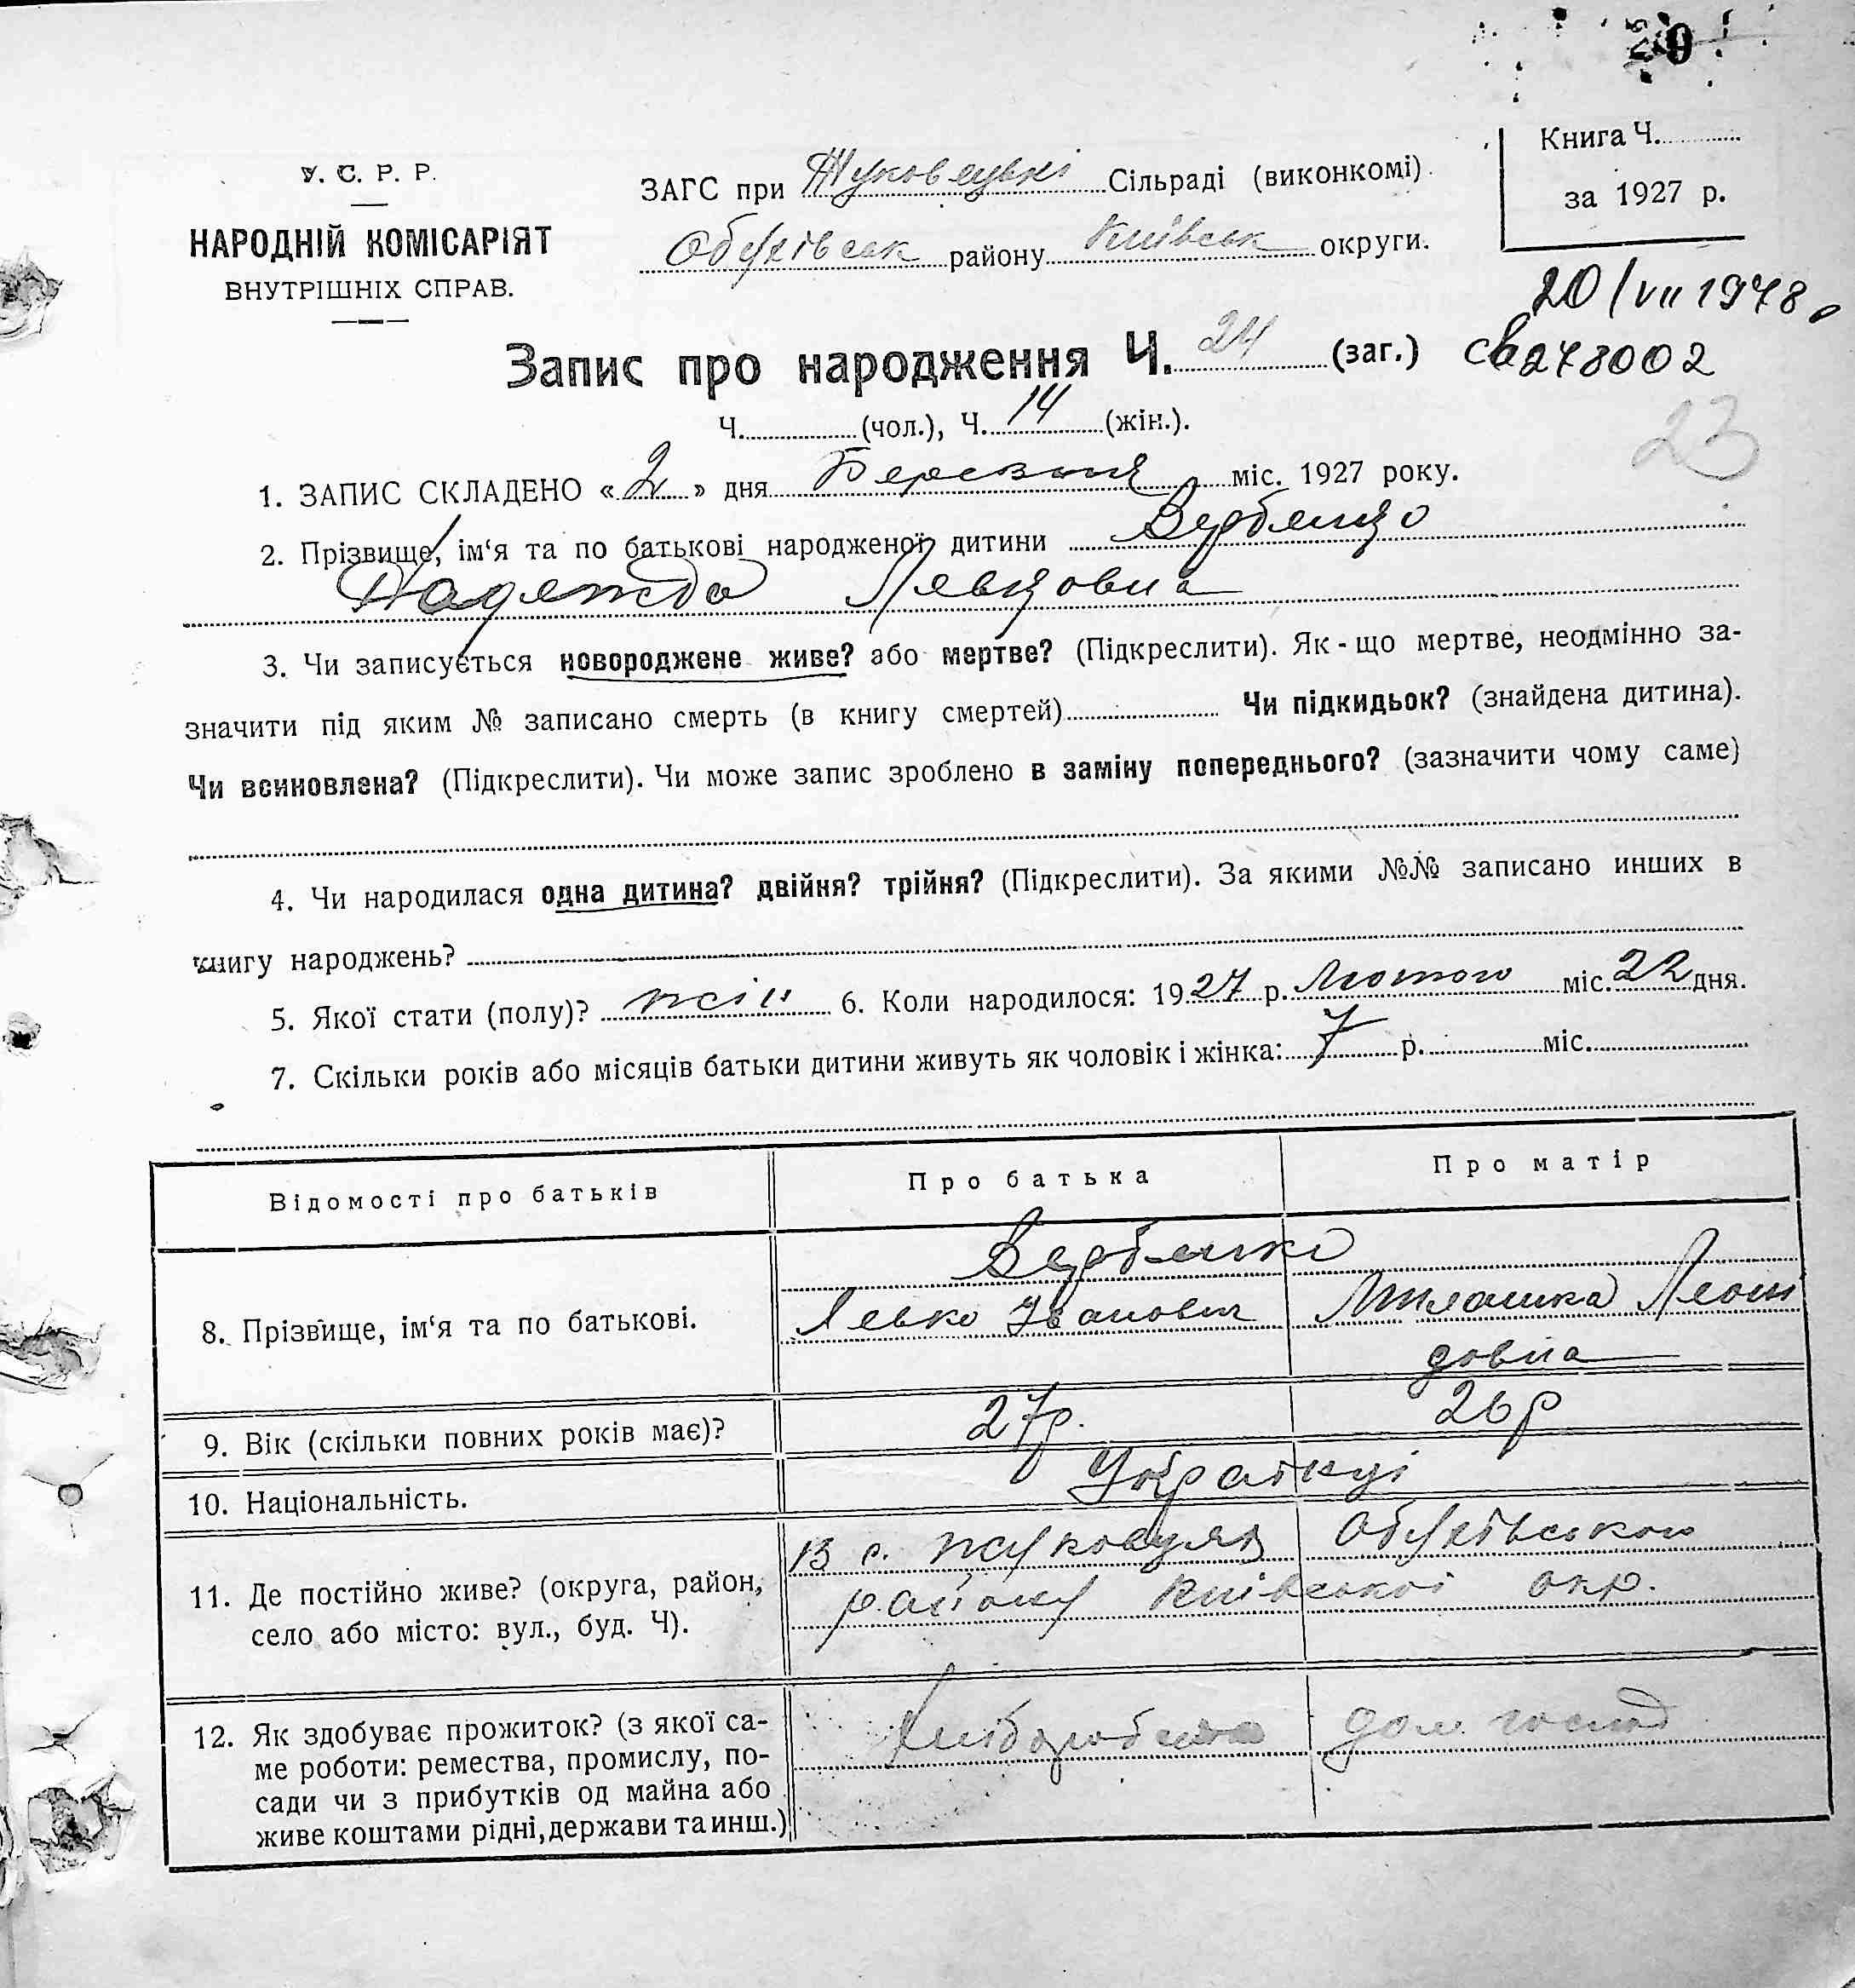 20
Книга Ч.
за 1927 р.
У. С. Р. Р.
НАРОДНІЙ КОМІСАРІЯТ
ВНУТРІШНІХ СПРАВ.
ЗАГС при Жуковецькі Сільраді (виконкомі).
Обухівськ району Київськ округи.
20/VII 1978
св 278002
Запис про народження Ч. 24 (заг.)
Ч. (чол.), Ч. 14 (жін.).
23
1. ЗАПИС СКЛАДЕНО « 2 » дня Березня міс. 1927 року.
2. Прізвище, ім‘я та по батькові народженої дитини Вербенко
Надежда Левковна
3. Чи записується новороджене живе? або мертве? (Підкреслити). Як-що мертве, неодмінно за-
значити під яким № записано смерть (в книгу смертей) Чи підкидьок? (знайдена дитина).
Чи всиновлена? (Підкреслити). Чи може запис зроблено в заміну попереднього? (зазначити чому саме)
4. Чи народилася одна дитина? двійня? трійня? (Підкреслити). За якими №№ записано инших в
книгу народжень?
5. Якої стати (полу)? жін 6. Коли народилося: 1927 р. Лютого міс. 22 дня.
7. Скільки років або місяців батьки дитини живуть як чоловік і жінка: 7 р. міс.
Відомості про батьків Про батька Про матір
8. Прізвище, ім‘я та по батькові. Вербенко
Левко Іванович Милашка Леон
довна
9. Вік (скільки повних років має)? 27р. 26р
10. Національність. Українці
11. Де постійно живе? (округа, район, село або місто: вул., буд. Ч). В с. Жуковцях Обухівського
району Київської окр.
12. Як здобуває прожиток? (з якої са-
ме роботи: ремества, промислу, по-
сади чи з прибутків од майна або
живе коштами рідні, держави та инш.)
Хлібороб дом. господ